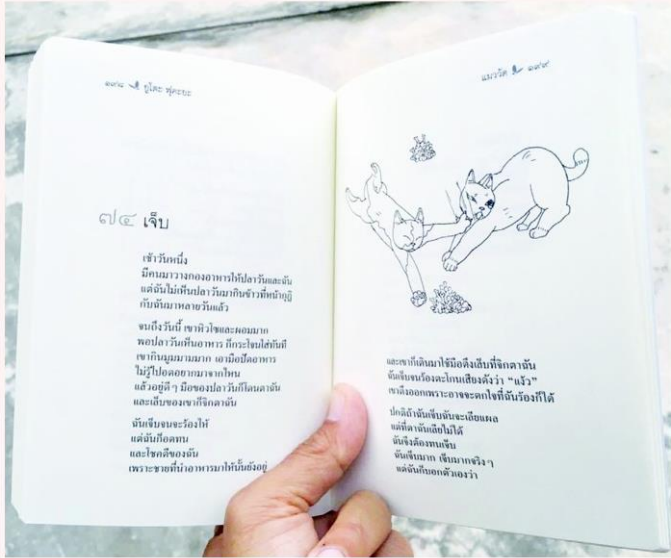 ๒๙๘ ยูโตะ ฟุคะยะ
๗๔ เจ็บ
เช้าวันหนึ่ง
มีคนมาวางกองอาหารให้ปลาวันและฉัน
แต่ฉันไม่เห็นปลาวันมากินข้าวที่หน้ากุฏิ
กับฉันมาหลายวันแล้ว
จนถึงวันนี้ เขาหิวโซและผอมมาก
พอปลาวันเห็นอาหาร ก็กระโจนใส่ทันที
เขากินมูมมามมาก เอามือปัดอาหาร
ไม่รู้ไปอดอยากมาจากไหน
แล้วอยู่ดีๆ มือของปลาวันก็โดนตาฉัน
และเล็บของเขาก็จิกตาฉัน
ฉันเจ็บจนจะร้องไห้
แต่ฉันก็อดทน
และโชคดีของฉัน
เพราะชายที่นำอาหารมาให้นั้นยังอยู่
แมววัด ๒๙๙
และเขาก็เดินมาใช้มือดึงเล็บที่จิกตาฉัน
ฉันเจ็บจนร้องตะโกนเสียงดังว่า “แง้ว”
เขาดึงออกเพราะอาจจะตกใจที่ฉันร้องก็ได้
ปกติถ้าฉันเจ็บฉันจะเลียแผล
แต่ที่ตาฉันเลียไม่ได้
ฉันจึงต้องทนเจ็บ
ฉันเจ็บมาก เจ็บมากจริงๆ
แต่ฉันก็บอกตัวเองว่า